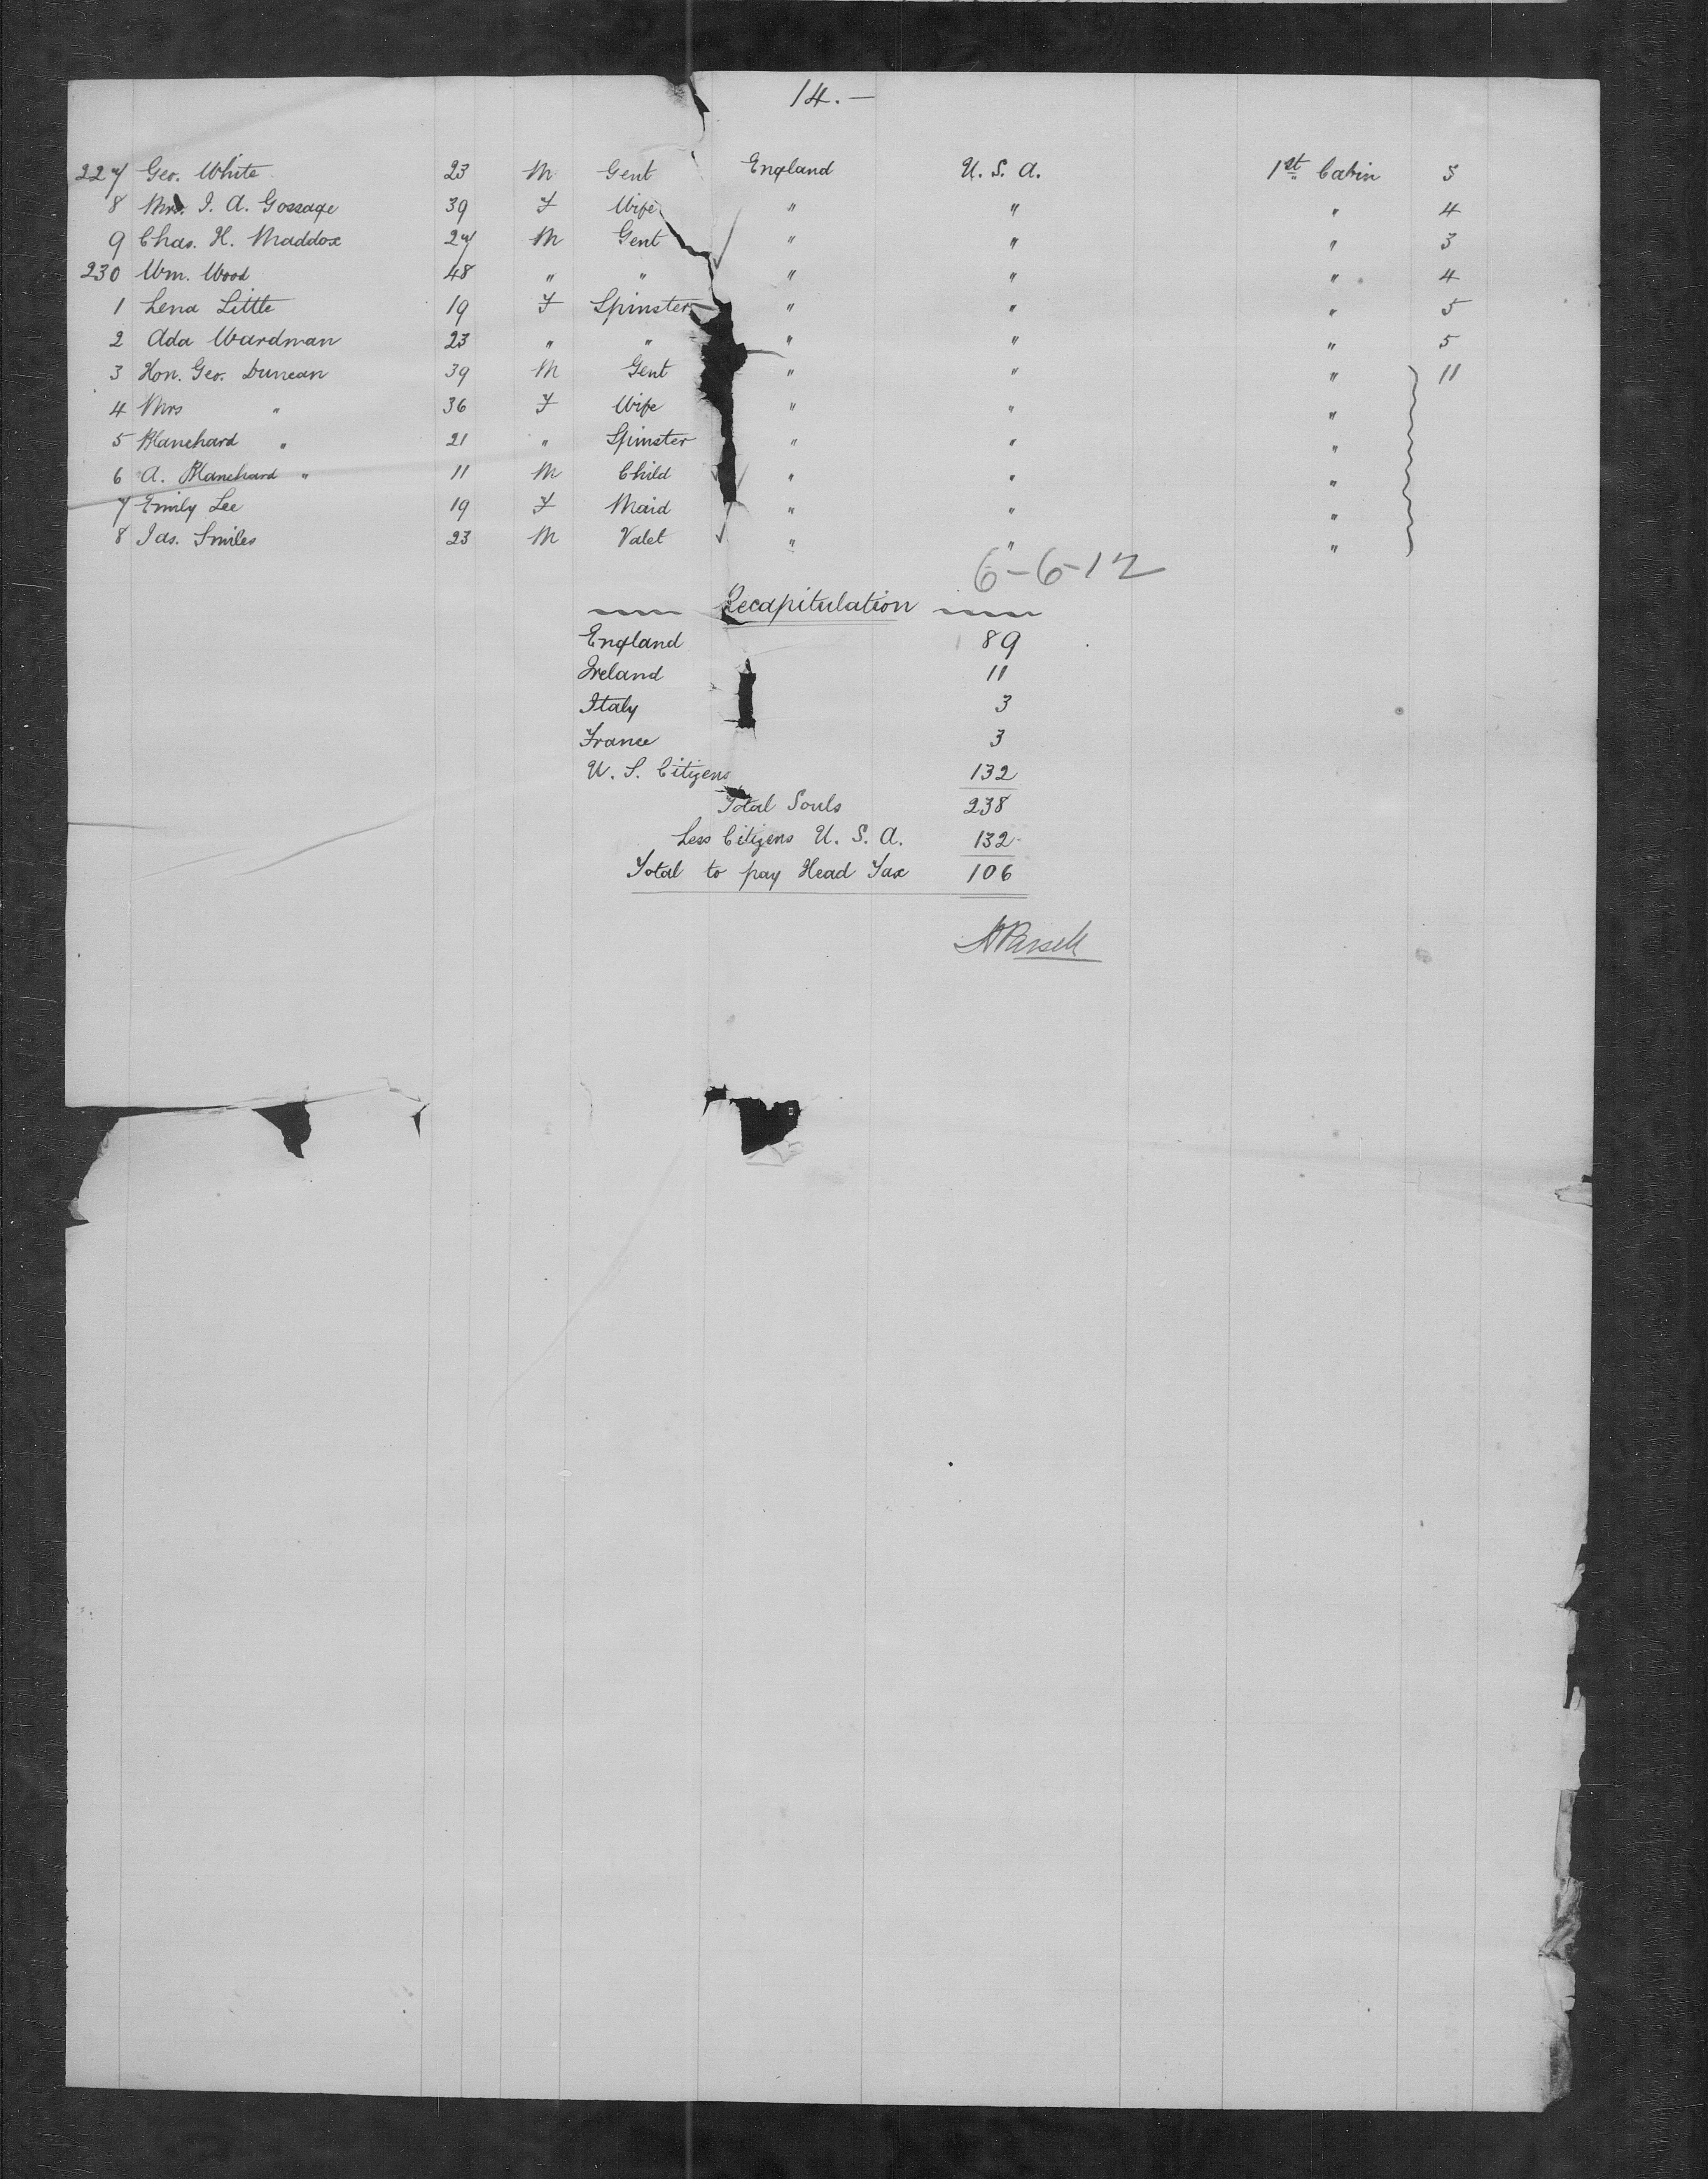 14.—
227 Geo. White 23 M Gent England U. S. A. 1st Cabin 3
8 Mrs. I. A. Gossage 39 F Wife " " " 4
9 Chas. H. Maddox 27 M Gent " " " 3
230 Wm. Wood 48 " " " " " 4
1 Lena Little 19 F Spinster " " " 5
2 Ada Wardman 23 " " " " " 5
3 Hon. Geo. Duncan 39 M Gent " " " 11
4 Mrs " 36 F Wife " " "
5 Blanchard " 21 " Spinster " " "
6 A. Blanchard " 11 M Child " " "
7 Emily Lee 19 F Maid " " "
8 Jas. Smiles 23 M Valet " " "
6-6-12
Recapitulation
England 89
Ireland 11
Italy 3
France 3
U. S. Citizens 132
Total Souls 238
Less Citizens U. S. A. 132
Total to pay Head Tax 106